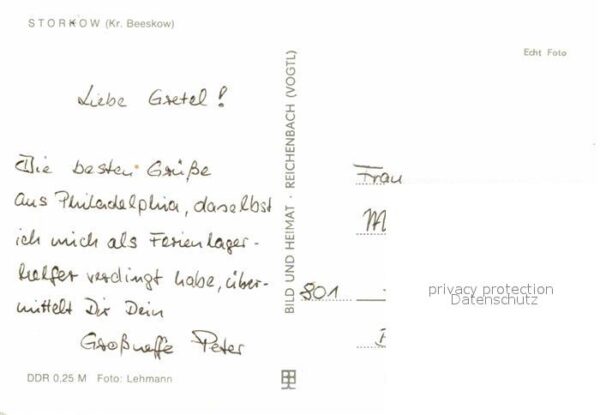 STORKOW (Kr. Beeskow)
Echt Foto
Liebe Gretel!
Die besten Grüße
aus Philadelphia, daselbst
ich mich als Ferienlager-
helfer verdingt habe, über-
mittelt Dir Dein
Großneffe Peter
BILD UND HEIMAT · REICHENBACH (VOGTL)
Frau
M
801
privacy protection
Datenschutz
DDR 0,25 M Foto: Lehmann